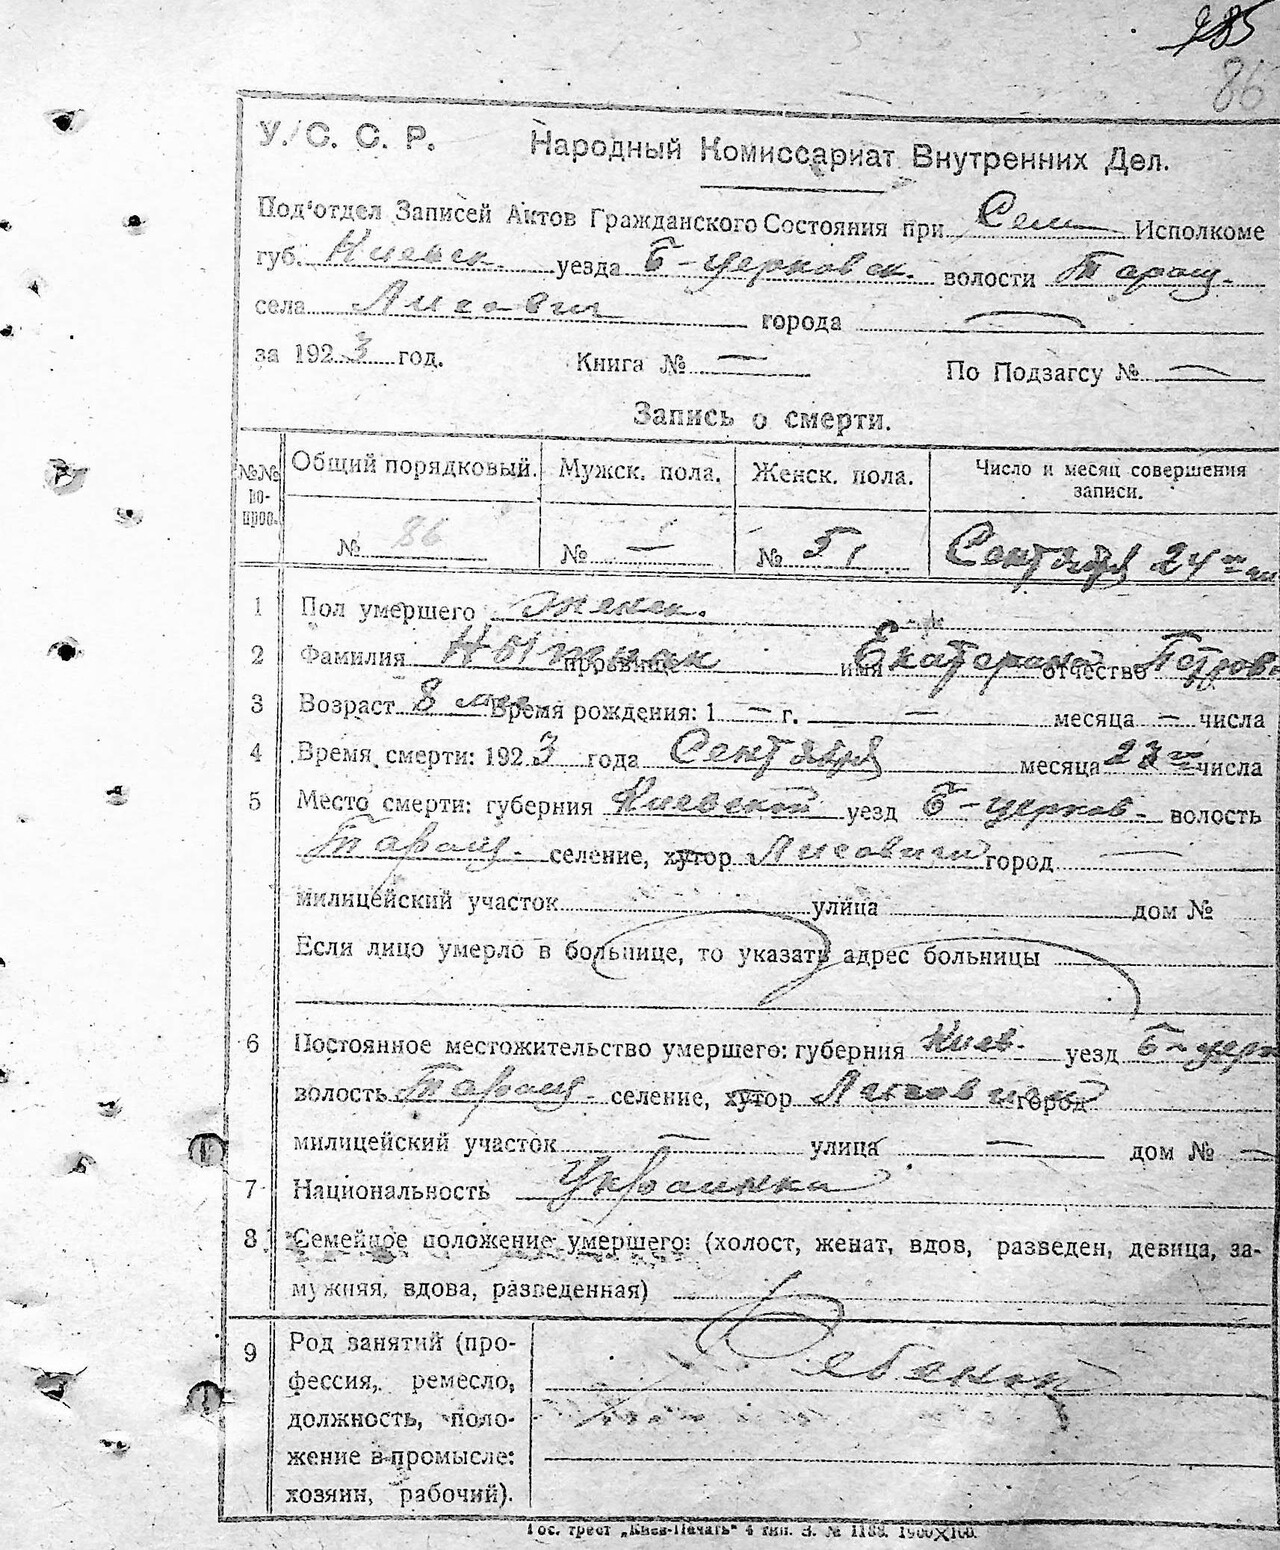 185
86
У. С. С. Р. Народный Комиссариат Внутренних Дел.
Под'отдел Записей Актов Гражданского Состояния при Сель Исполкоме
губ. Киевск. уезда Б-церковск. волости Таращ.
села Лисович города —
за 1923 год. Книга № — По Подзагсу № —
Запись о смерти.
№№ вопрос. Общий порядковый. Мужск. пола. Женск. пола. Число и месяц совершения записи.
№ 86 № — № 51 Сентября 24го
1 Пол умершего женск.
2 Фамилия прозвище имя Екатерина отчество Петровн
3 Возраст 8 мес Время рождения: 1 — г. — месяца — числа
4 Время смерти: 1923 года Сентября месяца 23го числа
5 Место смерти: губерния Киевской уезд Б-церков. волость
Таращ. селение, хутор Лисовичи город —
милицейский участок улица дом №
Если лицо умерло в больнице, то указать адрес больницы
6 Постоянное местожительство умершего: губерния Киев. уезд Б-церк
волость Таращ. селение, хутор Лисовичи город
милицейский участок — улица — дом № —
7 Национальность Украинка
8 Семейное положение умершего: (холост, женат, вдов, разведен, девица, за-
мужняя, вдова, разведенная)
9 Род занятий (про-
фессия, ремесло, Ребенок
должность, поло-
жение в промысле:
хозяин, рабочий).
Гос. трест „Киев-Печать" 4 тип. З. № 1188. 1900X100.